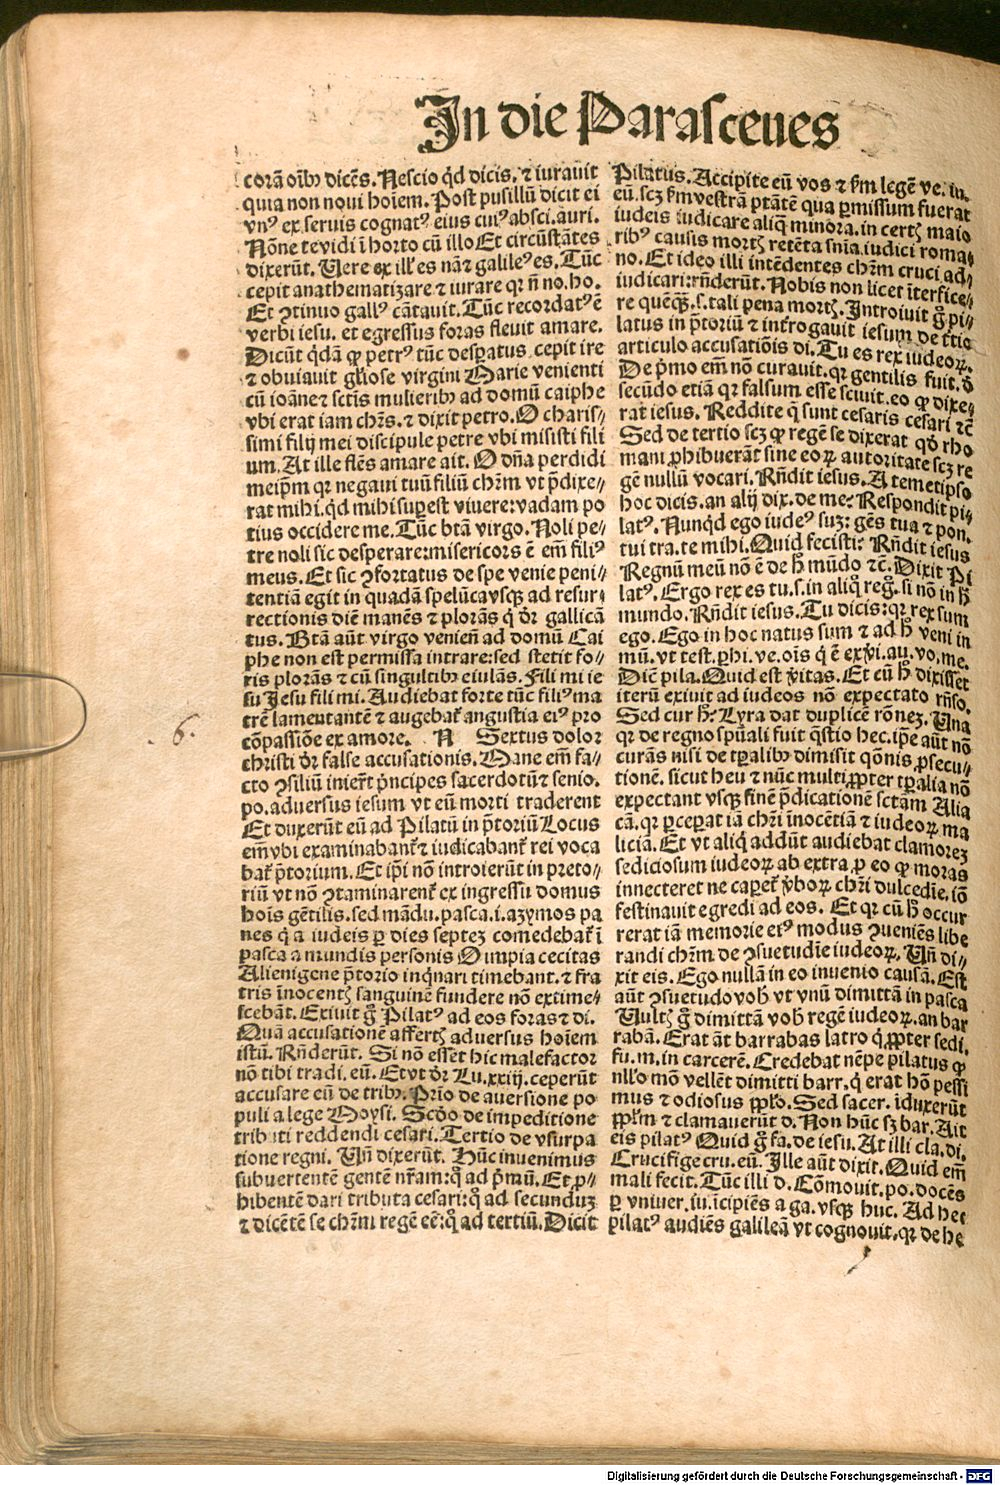 In die Parasceues
corā oībꝰ dicēs. Nescio qͥd dicis. ⁊ iurauit
quia non noui hoīem. Post pusillū dicit ei
vnꝰ ex seruis cognatꝰ eius cuiꝰ absci. auri.
Nōne te vidi ī horto cū illo Et circūstātes
dixerūt. Vere ex illꝭ es nā ⁊ galileꝰ es. Tūc
cepit anathematizare ⁊ iurare qꝛ nō no. ho.
Et ꝯtinuo gallꝰ cātauit. Tūc recordatꝰ ē
verbi iesu. et egressus foras fleuit amare.
Dicūt qͥdā ꝙ petrꝰ tūc desꝑatus cepit ire
⁊ obuiauit gl̄iose virgini Marie venienti
cū ioāne ⁊ sctīs mulieribꝰ ad domū caiphe
vbi erat iam chr̄s. ⁊ dixit petro. O charis-
simi filij mei discipule petre vbi misisti fili
um. At ille flēs amare ait. O dn̄a perdidi
meip̄m qꝛ negaui tuū filiū chr̄m vt p̄dixe-
rat mihi. qͥd mihi suꝑest viuere: vadam po
tius occidere me. Tūc btā virgo. Noli pe-
tre noli sic desperare: misericors ē em̄ filiꝰ
meus. Et sic ꝯfortatus de spe venie peni-
tentiā egit in quadā spelūca vsqꝫ ad resur-
rectionis diē manēs ⁊ plorās qͥ dr̄ gallicā
tus. Btā aūt virgo venien̄ ad domū Cai
phe non est permissa intrare: sed stetit fo-
ris plorās ⁊ cū singultibꝰ eiulās. Fili mi ie
su Jesu fili mi. Audiebat forte tūc filiꝰ ma
trē lamentantē ⁊ augebat̄ angustia eiꝰ pro
cōpassiōe ex amore. N Sextus dolor
. 6 .
christi dr̄ false accusationis. Mane em̄ fa-
cto ꝯsiliū inier̄t pͥncipes sacerdotū ⁊ senio.
po. aduersus iesum vt eū morti traderent
Et duxerūt eū ad Pilatū in p̄toriū Locus
em̄ vbi examinabant̄ ⁊ iudicabant̄ rei voca
bat̄ p̄torium. Et ip̄i nō introierūt in preto-
riū vt nō ꝯtaminarent̄ ex ingressu domus
hoīs gētilis. sed mādu. pasca. i. azymos pa
nes qͥ a iudeis ꝑ dies septeꝫ comedebat̄ ī
pasca a mundis personis O impia cecitas
Alienigene p̄torio inqͥnari timebant. ⁊ fra
tris īnocentꝭ sanguinē fundere nō extime-
scebāt. Exiuit gͦ Pilatꝰ ad eos foras ⁊ di.
Quā accusationē affertꝭ aduersus hoīem
istū. Rn̄derūt. Si nō esset hic malefactor
nō tibi tradi. eū. Et vt dr̄ Lu. xxiij. ceperūt
accusare eū de tribꝰ. Pͥmo de auersione po
puli a lege Moysi. Scd̄o de impeditione
tributi reddendi cesari. Tertio de vsurpa
tione regni. Vn̄ dixerūt. Hūc inuenimus
subuertentē gentē nr̄am: qͦ ad pͥmū. Et ꝓ-
hibentē dari tributa cesari: qͦ ad secunduꝫ
⁊ dicētē se chr̄m regē eē: qͦ ad tertiū. Dicit
Pilatus. Accipite eū vos ⁊ ẜm legē ve. iu.
eū. scꝫ ẜm vestrā ptātē qua ꝑmissum fuerat
iudeis iudicare aliqͣ minora. in certꝭ maio
ribꝰ causis mortꝭ retēta sn̄ia iudici roma-
no. Et ideo illi intēdentes chr̄m cruci ad-
iudicari: rn̄derūt. Nobis non licet īterfice-
re quēqꝫ. s. tali pena mortꝭ. Introiuit gͦ pi-
latus in p̄toriū ⁊ int̄rogauit iesum de t̄tio
articulo accusatiōis di. Tu es rex iudeoꝝ.
De pͥmo em̄ nō curauit. qꝛ gentilis fuit. d̄
secūdo etiā qꝛ falsum esse sciuit. eo ꝙ dixe-
rat iesus. Reddite qͤ sunt cesaris cesari ⁊c̄
Sed de tertio scꝫ ꝙ regē se dixerat qd̓ rho
mani ꝓhibuerāt sine eoꝝ autoritate scꝫ re
gē nullū vocari. Rn̄dit iesus. A temetipso
hoc dicis. an alij dix. de me? Respondit pi-
latꝰ. Nunqͥd ego iudeꝰ suꝫ: gēs tua ⁊ pon.
tui tra. te mihi. Quid fecisti? Rn̄dit iesus
Regnū meū nō ē de h̓ mūdo ⁊c̄. Dixit Pi
latꝰ. Ergo rex es tu. s. in aliqͦ reg̓. si nō in h̓
mundo. Rn̄dit iesus. Tu dicis: qꝛ rex sum
ego. Ego in hoc natus sum ⁊ ad h̓ veni in
mū. vt test. ꝑhi. ve. oīs qͥ ē ex v̓i. au. vo. me.
Dic̄ pila. Quid est v̓itas. Et cū h̓ dixisset
iterū exiuit ad iudeos nō expectato rn̄so.
Sed cur h̓? Lyra dat duplicē rōneꝫ. Una
qꝛ de regno spūali fuit qͣstio hec. ip̄e aūt nō
curās nisi de tꝑalibꝰ dimisit qͣōnis ꝓsecu-
tionē. sicut heu ⁊ nūc multi ꝓpter tꝑalia nō
expectant vsqꝫ finē p̄dicationē sctām Alia
cā. qꝛ ꝑceꝑat iā chr̄i īnocētiā ⁊ iudeoꝝ ma
liciā. Et vt aliqͥ addūt audiebat clamoreꝫ
sediciosum iudeoꝝ ab extra. ꝓ eo ꝙ moras
innecteret ne caꝑet̄ v̓boꝝ chr̄i dulcedīe. iō
festinauit egredi ad eos. Et qꝛ cū h̓ occur
rerat iā memorie eiꝰ modus ꝯueniēs libe
randi chr̄m de ꝯsuetudīe iudeoꝝ. Vn̄ di-
xit eis. Ego nullā in eo inuenio causā. Est
aūt ꝯsuetudo vob̓ vt vnū dimittā in pasca
Vultꝭ gͦ dimittā vob̓ regē iudeoꝝ. an bar
rabā. Erat āt barrabas latro qͥ ꝓpter sedi.
fu. m. in carcerē. Credebat nēpe pilatus ꝙ
nll̓o mō vellēt dimitti barr. qͥ erat hō pessi
mus ⁊ odiosus ppl̓o. Sed sacer. īduxerūt
ppl̓m ⁊ clamauerūt d. Non hūc sꝫ bar. Ait
eis pilatꝰ Quid gͦ fa. de iesu. At illi cla. di.
Crucifige cru. eū. Ille aūt dixit. Quid em̄
mali fecit. Tūc illi d. Cōmouit. po. docēs
ꝑ vniuer. iu. īcipiēs a ga. vsqꝫ huc. Ad hec
pilatꝰ audiēs galileā vt cognouit. qꝛ de he
Digitalisierung gefördert durch die Deutsche Forschungsgemeinschaft - DFG